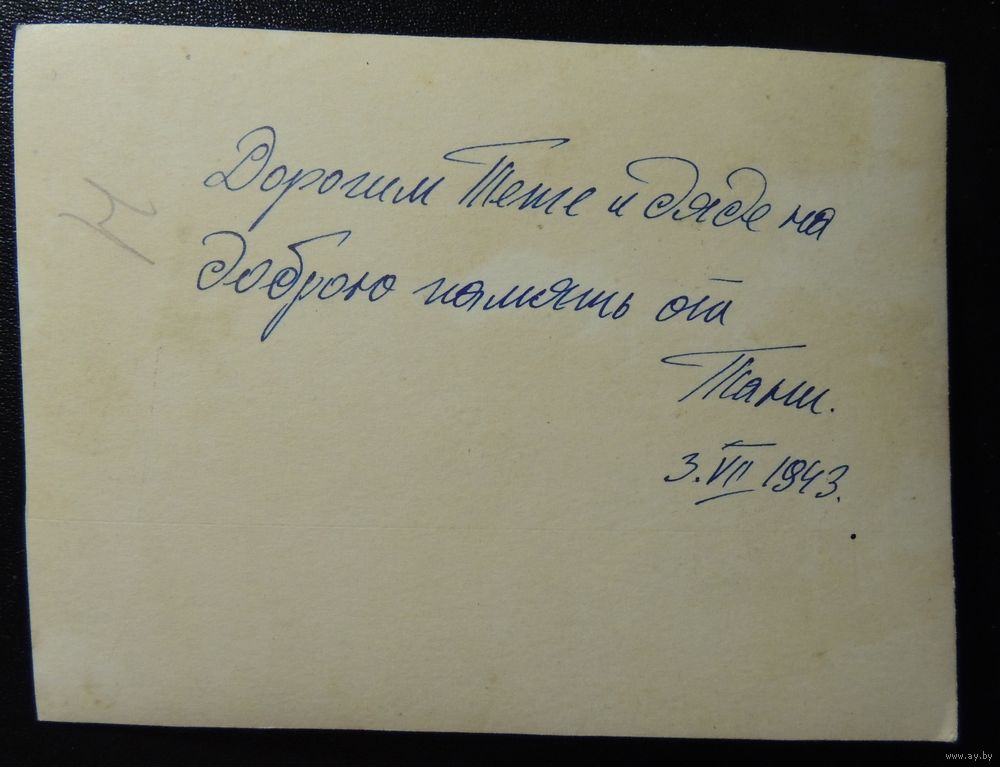 Дорогим Тете и дяде на
доброю память от
Тани.
3.VII 1943.
www.ay.by